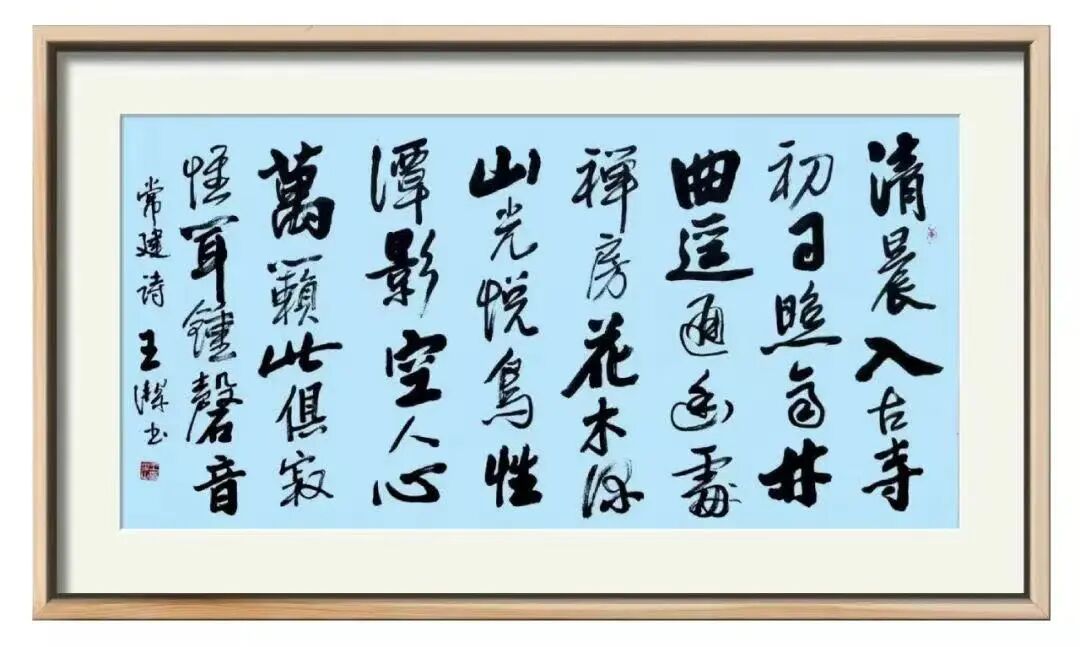 清晨入古寺
初日照高林
曲逕通幽處
禪房花木深
山光悦鳥性
潭影空人心
萬籟此俱寂
惟聞鍾磬音
常建诗 王潔书